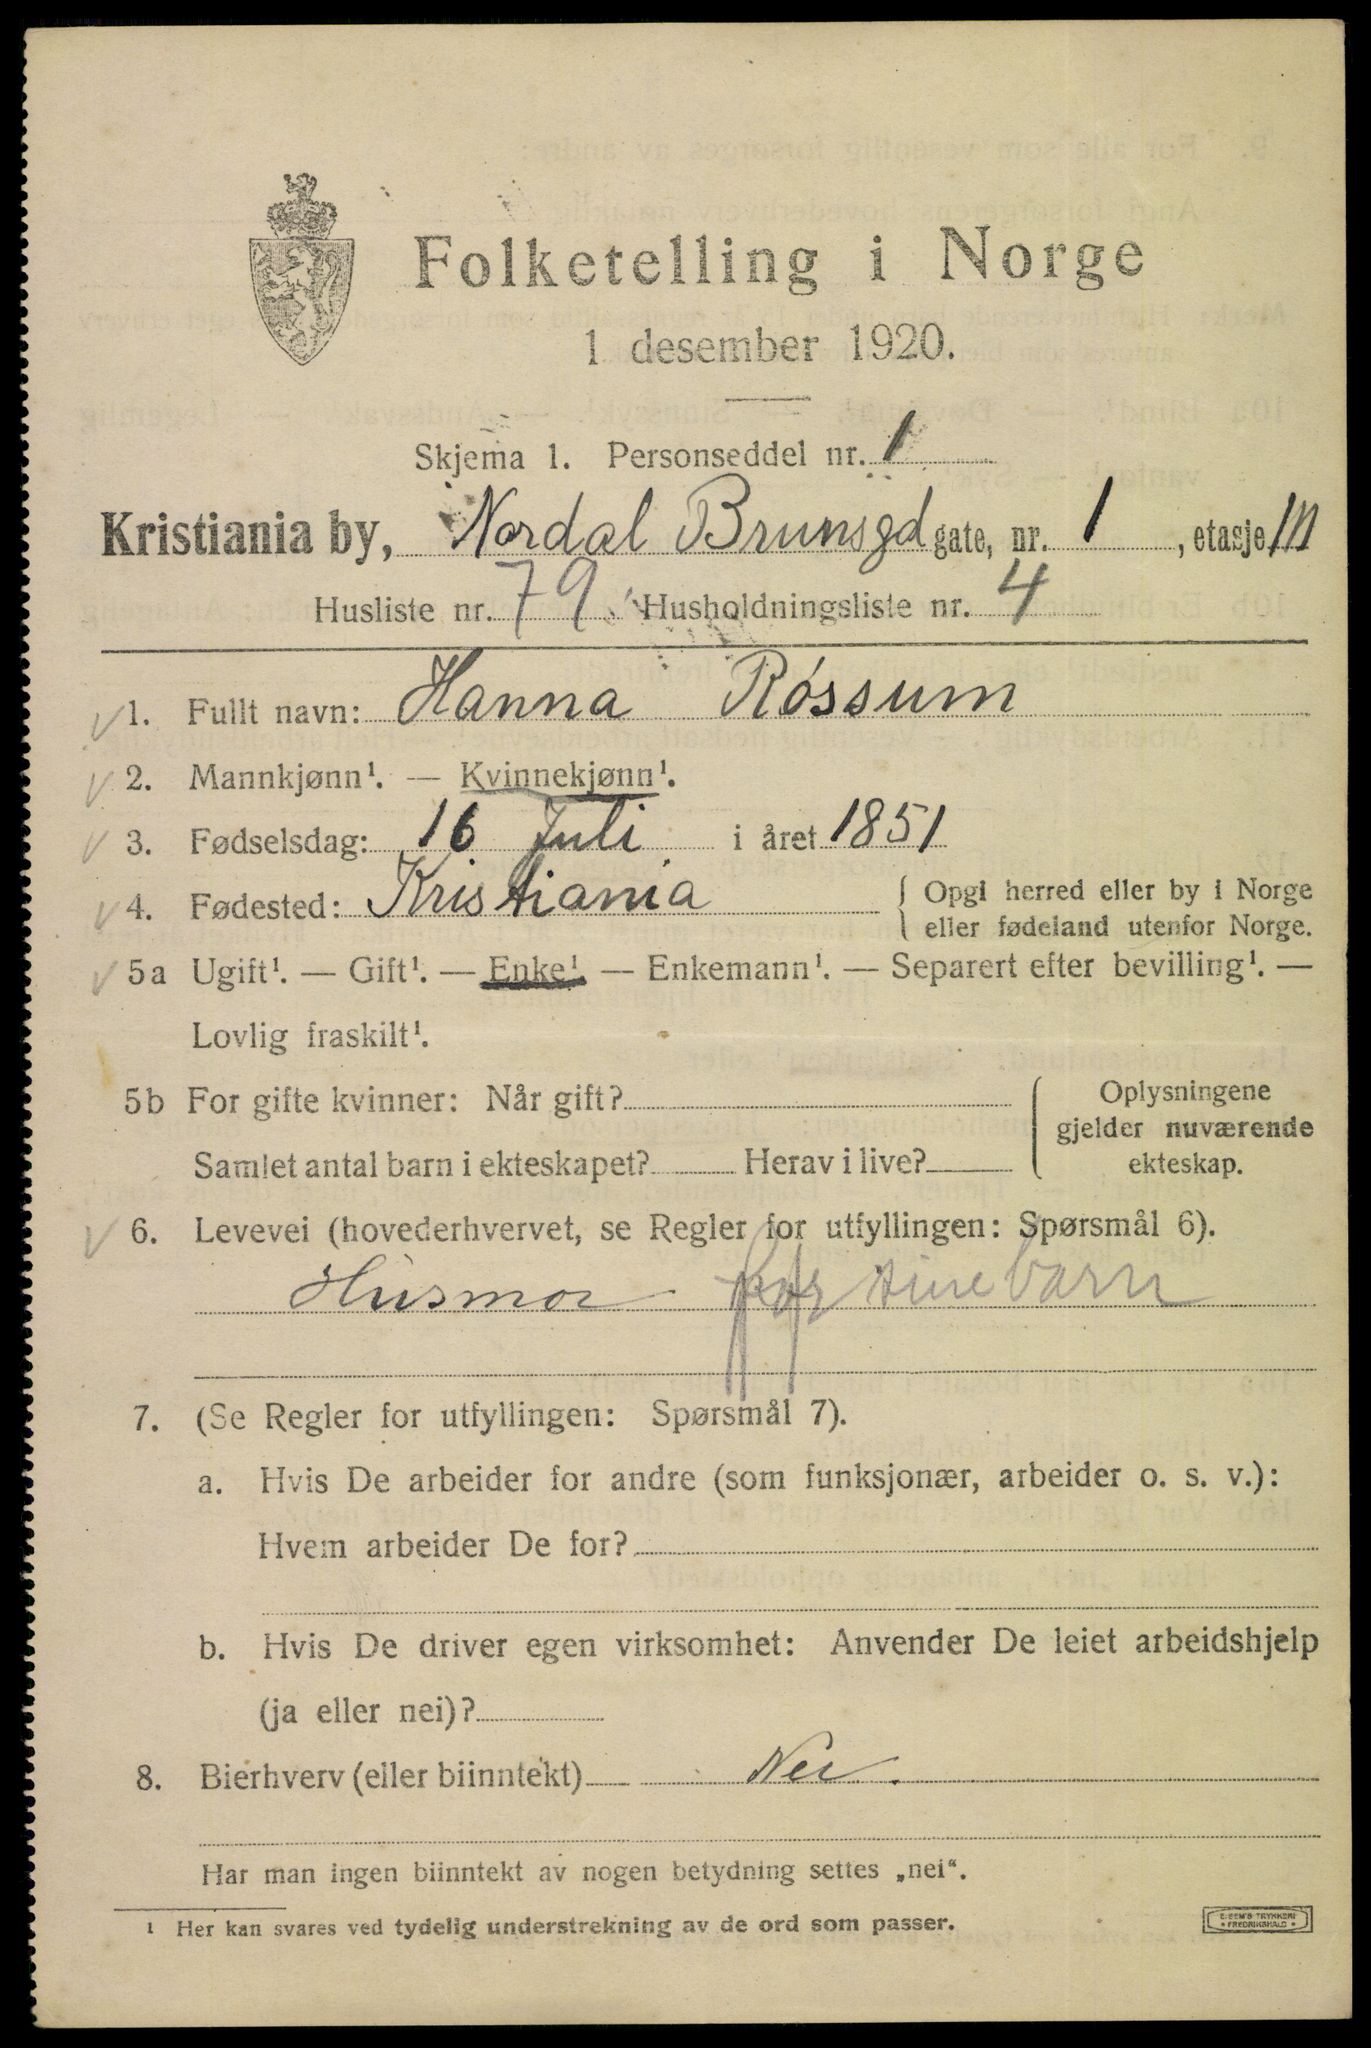 Folketelling i Norge
1 desember 1920.
Skjema 1. Personseddel nr. 1
Kristiania by, Nordal Brunsgd gate, nr. 1, etasje III
Husliste nr. 79 Husholdningsliste nr. 4
1. Fullt navn: Hanna Róssum
2. Mannkjønn¹. — Kvinnekjønn¹.
3. Fødselsdag: 16 Juli i året 1851
4. Fødested: Kristiania { Opgi herred eller by i Norge
eller fødeland utenfor Norge.
5a Ugift¹. — Gift¹. — Enke¹. — Enkemann¹. — Separert efter bevilling¹. —
Lovlig fraskilt¹.
5b For gifte kvinner: Når gift?
Samlet antal barn i ekteskapet? Herav i live?
Oplysningene
gjelder nuværende
ekteskap.
6. Levevei (hovederhvervet, se Regler for utfyllingen: Spørsmål 6).
Husmor for sine barn
7. (Se Regler for utfyllingen: Spørsmål 7).
a. Hvis De arbeider for andre (som funksjonær, arbeider o. s. v.):
Hvem arbeider De for?
b. Hvis De driver egen virksomhet: Anvender De leiet arbeidshjelp
(ja eller nei)?
8. Bierhverv (eller biinntekt) Nei.
Har man ingen biinntekt av nogen betydning settes „nei“.
¹ Her kan svares ved tydelig understrekning av de ord som passer.
TRYKKERI
FREDRIKSHALD